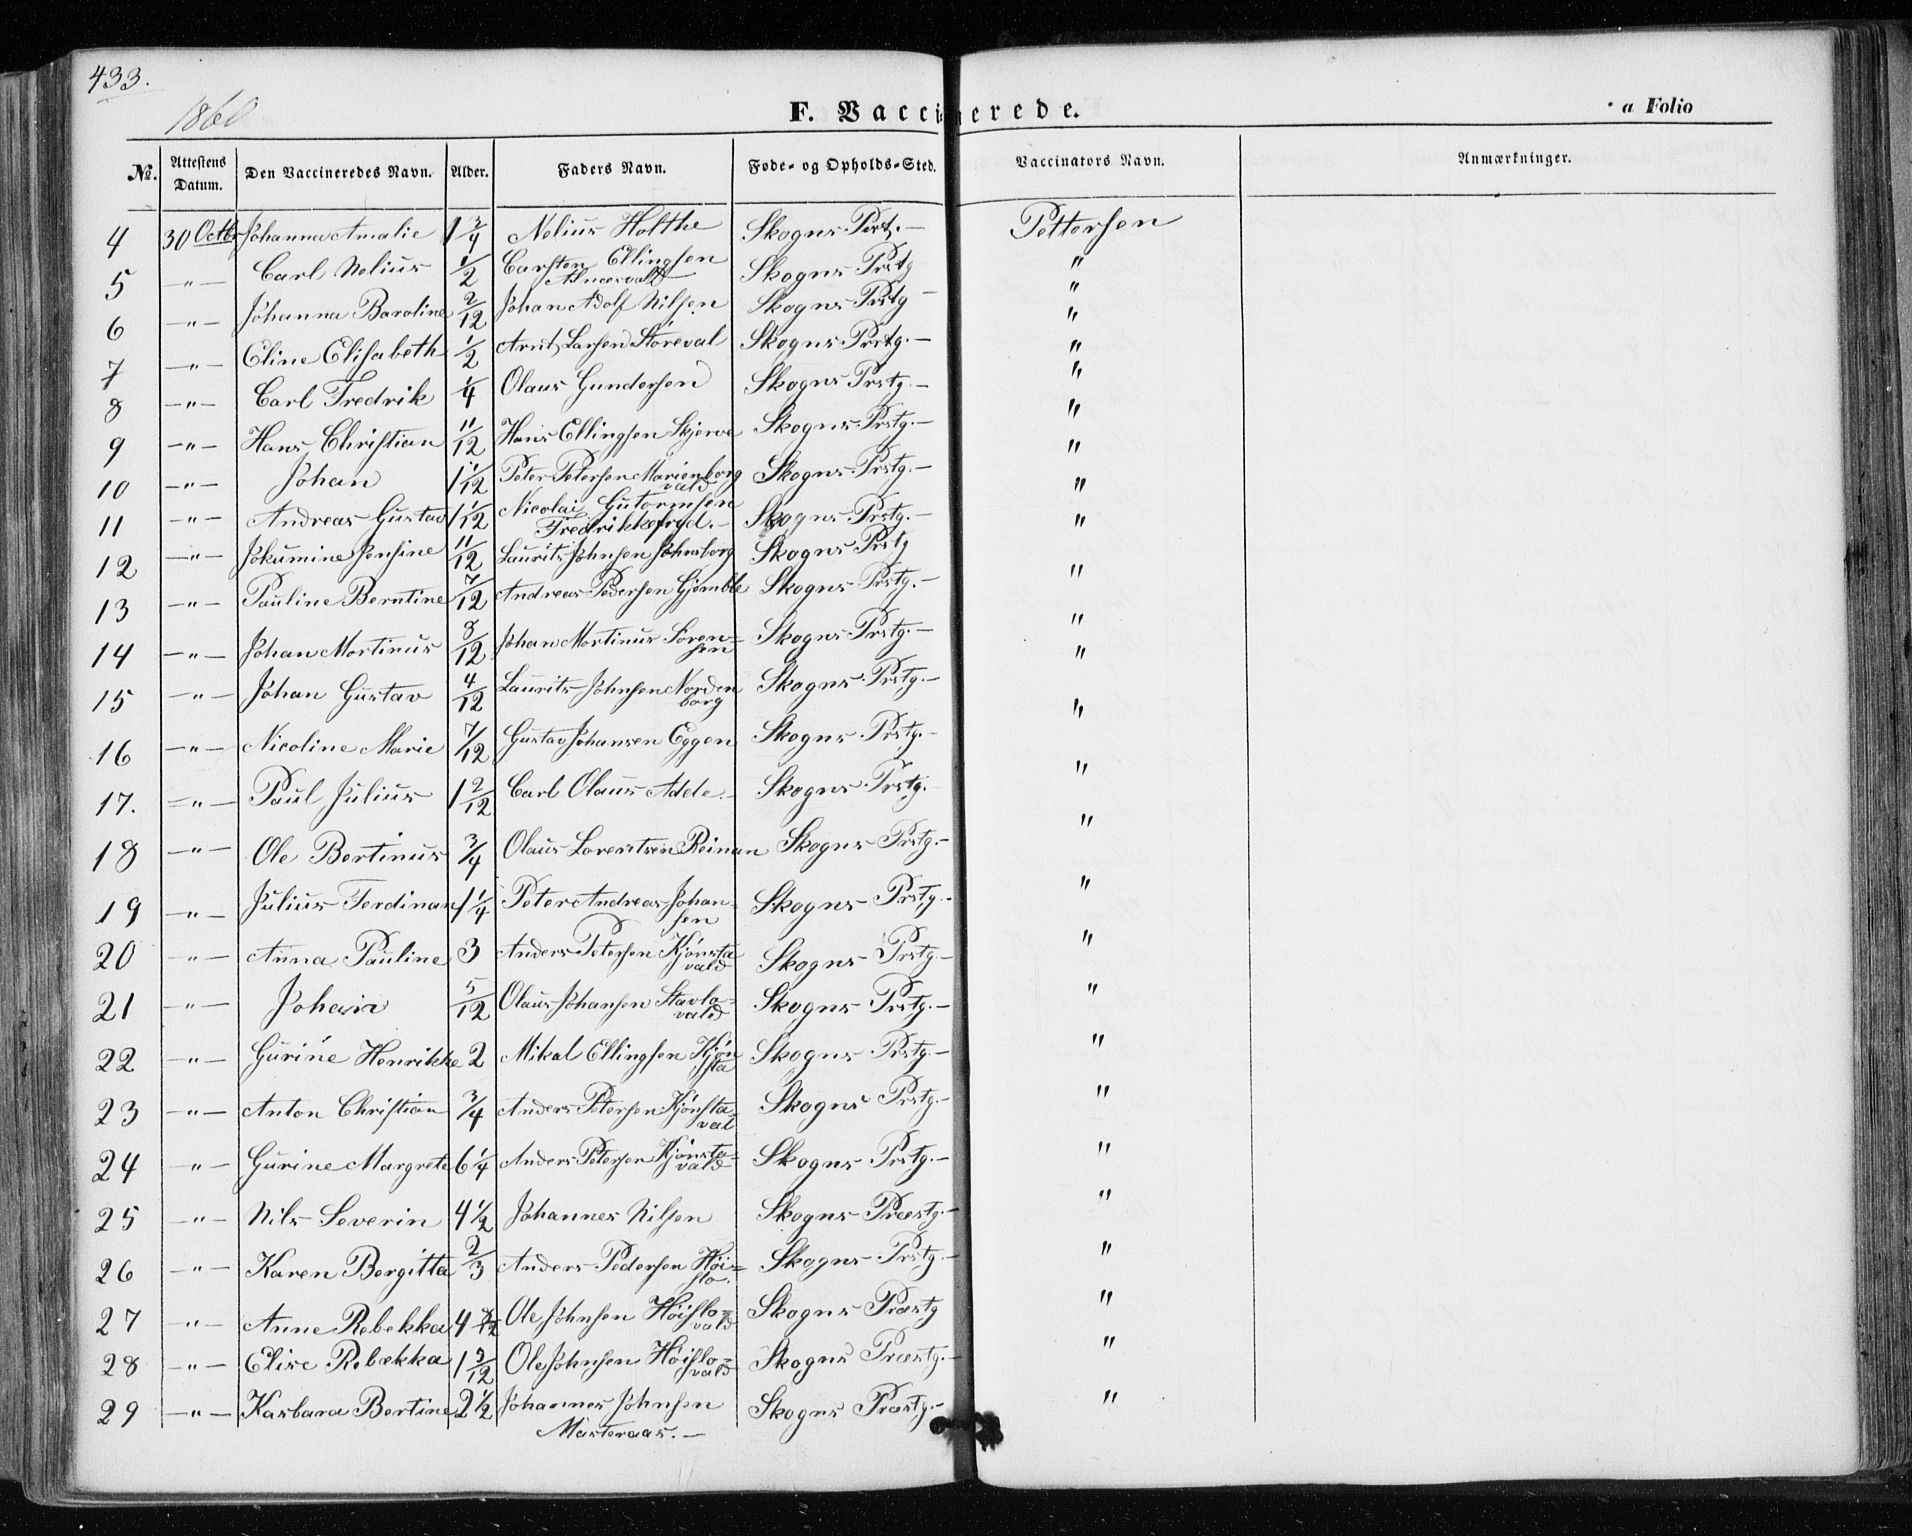 433.
1860
F. Vaccinerede.
a Folio
№.
Attestens Datum.
Den Vaccineredes Navn.
Alder.
Faders Navn.
Føde- og Opholds-Sted.
Vaccinators Navn.
Anmærkninger.
4 30 Octbr Johanna Amalie 1 3/4 Nelius Holthe Skogns Prst.- Pettersen
5 -"- Carl Nelius 1/2 Carsten Ellingsen Skogns Prstg "
6 -"- Johanna Baroline 2/12 Johan Adolf Nilsen Skogns Prstg - "
7 -"- Eline Elisabeth 1/2 Arnt Larsen Storeval Skogns Prstg.- "
8 -"- Carl Fredrik 1/4 Olaus Gundersen Skogns Prstg.- "
9 -"- Hans Christian 11/12 Hans Ellingsen Skjerve Skogns Prstg.- "
10 -"- Johan 1 1/12 Peter Petersen Marienborg
vald Skogns Prstg.- "
11 -"- Andreas Gustav 1 1/12 Nicolai Gutormsen
Fredrikkefryd.- Skogns Prstg.- "
12 -"- Jokumine Jensine 11/12 Laurits Johnsen Johnsborg Skogns Prstg "
13 -"- Pauline Berntine 7/12 Andreas Pedersen Gjemble Skogns Prstg.- "
14 -"- Johan Mortinus 8/12 Johan Mortinus Soren=
sen Skogns Prstg.- "
15 -"- Johan Gustav 4/12 Laurits Johnsen Norden
borg Skogns Prstg.- "
16 -"- Nicoline Marie 7/12 Gustav Johansen Eggen Skogns Prstg.- "
17. -"- Paul Julius 1 2/12 Carl Olaus Adde.- Skogns Prstg.- "
18 -"- Ole Bertinus 3/4 Olaus Lorentsen Reinan Skogns Prstg.- "
19 -"- Julius Ferdinan 1 1/4 Peter Andreas Johan-
sen Skogns Prstg.- "
20 -"- Anna Pauline 3 Anders Petersen Kjønsta
vald Skogns Prstg.- "
21 -"- Johan 5/12 Olaus Johansen Stavlo-
vald Skogns Prstg.- "
22 -"- Gurine Henrikke 2 Mikal Ellingsen Kjøn
sta Skogns Prstg.- "
23 -"- Anton Christian 3/4 Anders Petersen Kjønsta-
val Skogns Prstg.- "
24 -"- Gurine Margrete 6 1/4 Anders Petersen Kjønsta-
vald Skogns Prstg.- "
25 -"- Nils Severin 4 1/2 Johannes Nilsen Skogns Præstg.- "
26 -"- Karen Bergitta 2/3 Anders Pedersen Høi=
slo. Skogns Prstg.- "
27 -"- Anne Rebekka 4 Ole Johnsen Høislo=
vald Skogns Præstg "
28 -"- Elise Rebækka 1 3/12 Ole Johnsen Høislo=
vald Skogns Præstg.- "
29 -"- Karbara Bertine 2 1/2 Johannes Johnsen
Masteraas.- Skogns Præstg.- "